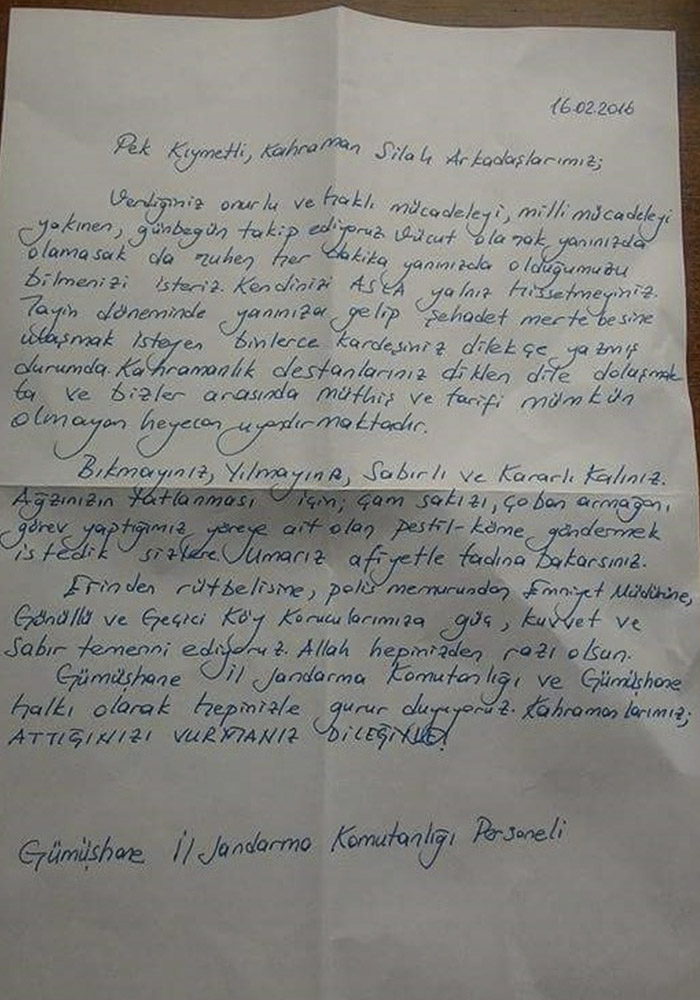 16.02.2016
Pek Kıymetli, Kahraman Silah Arkadaşlarımız;
Verdiğiniz onurlu ve haklı mücadeleyi, milli mücadeleyi
yakınen, günbegün takip ediyoruz. Vücut olarak yanınızda
olamasak da ruhen her dakika yanınızda olduğumuzu
bilmenizi isteriz. Kendinizi ASLA yalnız hissetmeyiniz.
Tayin döneminde yanınıza gelip şehadet mertebesine
ulaşmak isteyen binlerce kardeşiniz dilekçe yazmış
durumda. Kahramanlık destanlarınız dilden dile dolaşmak
ta ve bizler arasında müthiş ve tarifi mümkün
olmayan heyecan uyandırmaktadır.
Bıkmayınız, Yılmayınız, Sabırlı ve Kararlı Kalınız.
Ağzınızın tatlanması için; çam sakızı, çoban armağanı,
görev yaptığımız yöreye ait olan pestil-köme göndermek
istedik sizlere. Umarız afiyetle tadına bakarsınız.
Erinden rütbelisine, polis memurundan Emniyet Müdürüne,
Gönüllü ve Geçici Köy Korucularımıza güç, kuvvet ve
Sabır temenni ediyoruz. Allah hepinizden razı olsun.
Gümüşhane İl Jandarma Komutanlığı ve Gümüşhane
halkı olarak hepinizle gurur duyuyoruz. Kahramanlarımız;
ATTIĞINIZI VURMANIZ DİLEĞİYLE!
Gümüşhane İl Jandarma Komutanlığı Personeli